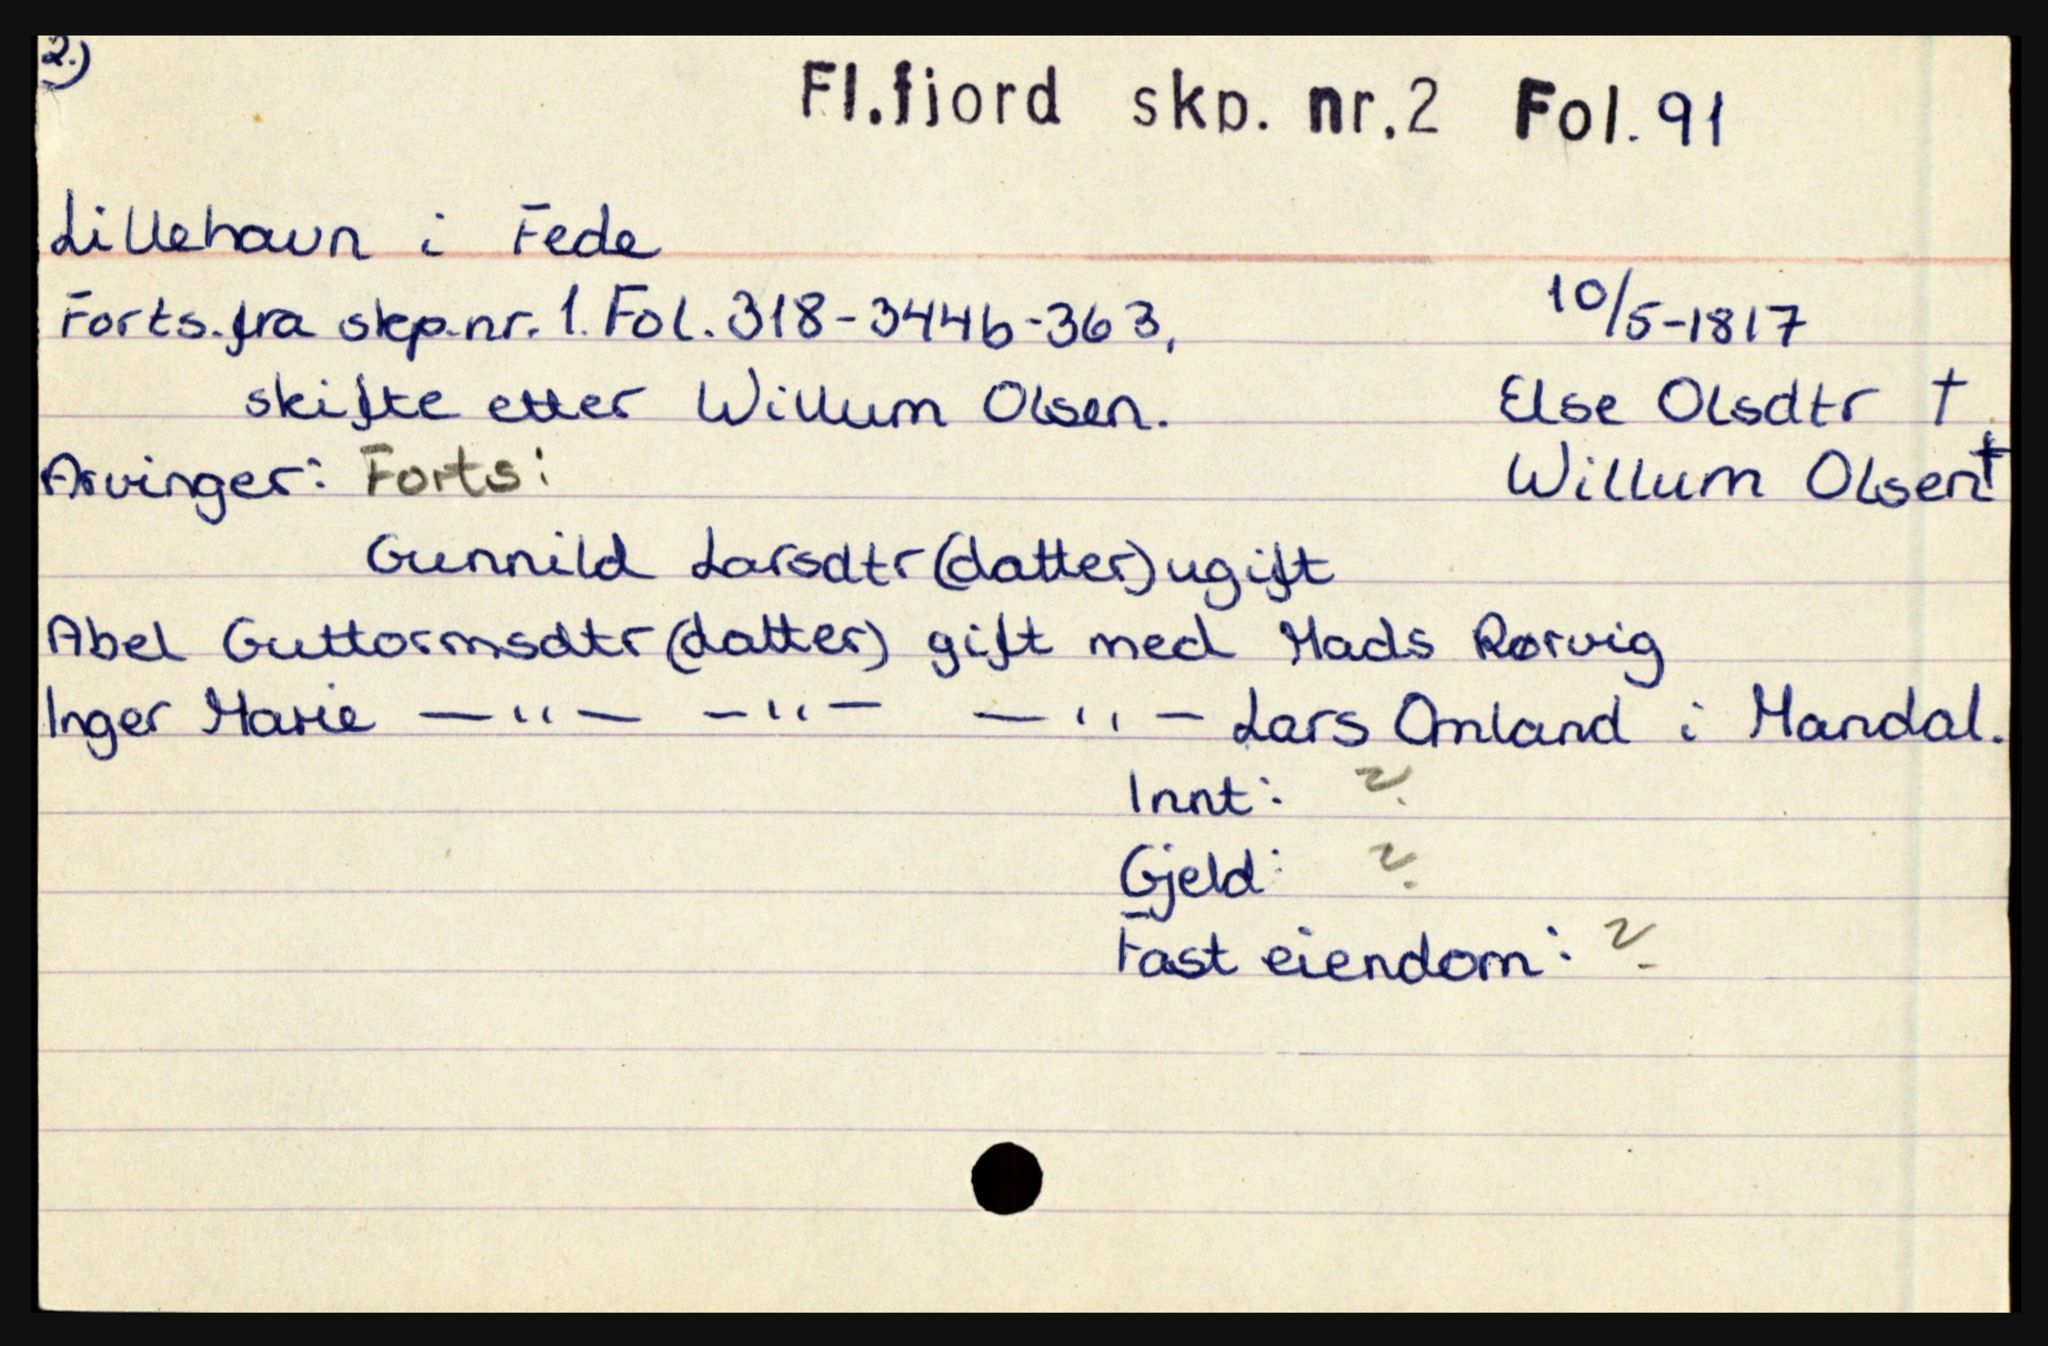 2.)
Fl.fjord skp. nr.2 Fol. 91
Lillehavn i Fede
Forts. fra skp.nr. 1. Fol. 318-344b-363, 10/5-1817
skifte etter Willum Olsen. Else Olsdtr †
Arvinger: Forts: Willum Olsen †
Gunnild Larsdtr (datter) ugift
Abel Guttormsdtr (datter) gift med Mads Rørvig
Inger Marie —"— —"— —"— Lars Omland i Mandal.
Innt: ?
Gjeld: ?
Fast eiendom: ?